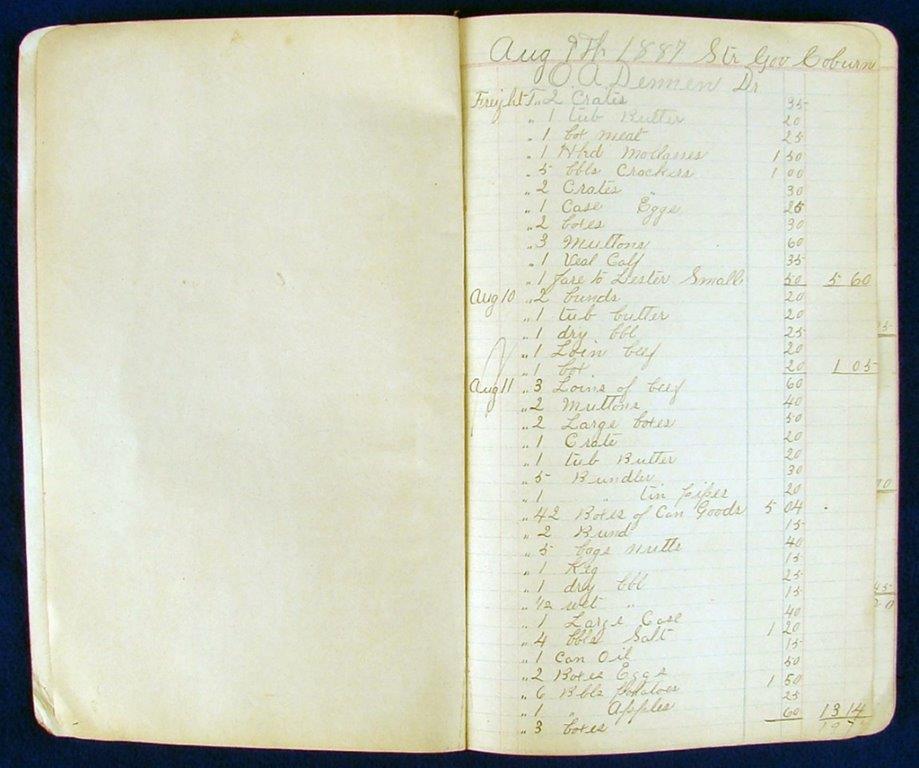 Aug 9th 1887 Str Gov Coburn
O.A. Dennen Dr
Freight T. " 2 Crates 35
" 1 tub Butter 20
" 1 box meat 25
" 1 Hhd Mollasses 1 50
" 5 bbls Crackers 1 00
" 2 Crates " 30
" 1 Case Eggs 25
" 2 boxes 30
" 3 Muttons 60
" 1 Veal Calf 35
" 1 fare to Lester Small 50 5 60
Aug 10 " 2 bunds 20
" 1 tub butter 20
" 1 dry bbl 25
" 1 Loin beef 20
" 1 box 20 1 05
Aug 11 " 3 Loins of beef 60
" 2 Muttons 40
" 2 Large boxes 50
" 1 Crate 20
" 1 tub Butter 20
" 5 Bundles 30
" 1 " tin pipes 20
" 42 Boxes of Can Goods 5 04
" 2 Bund 15
" 5 bags nutts 40
" 1 Keg 15
" 1 dry bbl 25
" 1/2 wet " 15
" 1 Large Case 40
" 4 bbls Salt 1 20
" 1 Can Oil 15
" 2 Boxes Eggs 50
" 6 Bbls Potatoes 1 50
" 1 " Apples 25
" 3 boxes 60 13 14